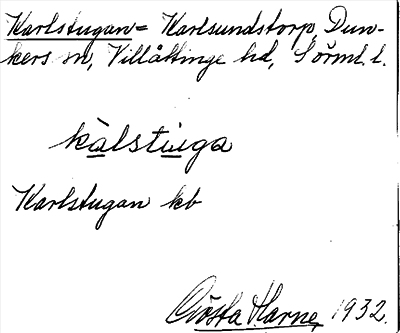 Karlstugan = Karlsundstorp, Dun-
kers sn, Villåttinge hd, Sörml. l.
kàlstuga
Karlstugan kb
Gösta Harne, 1932.